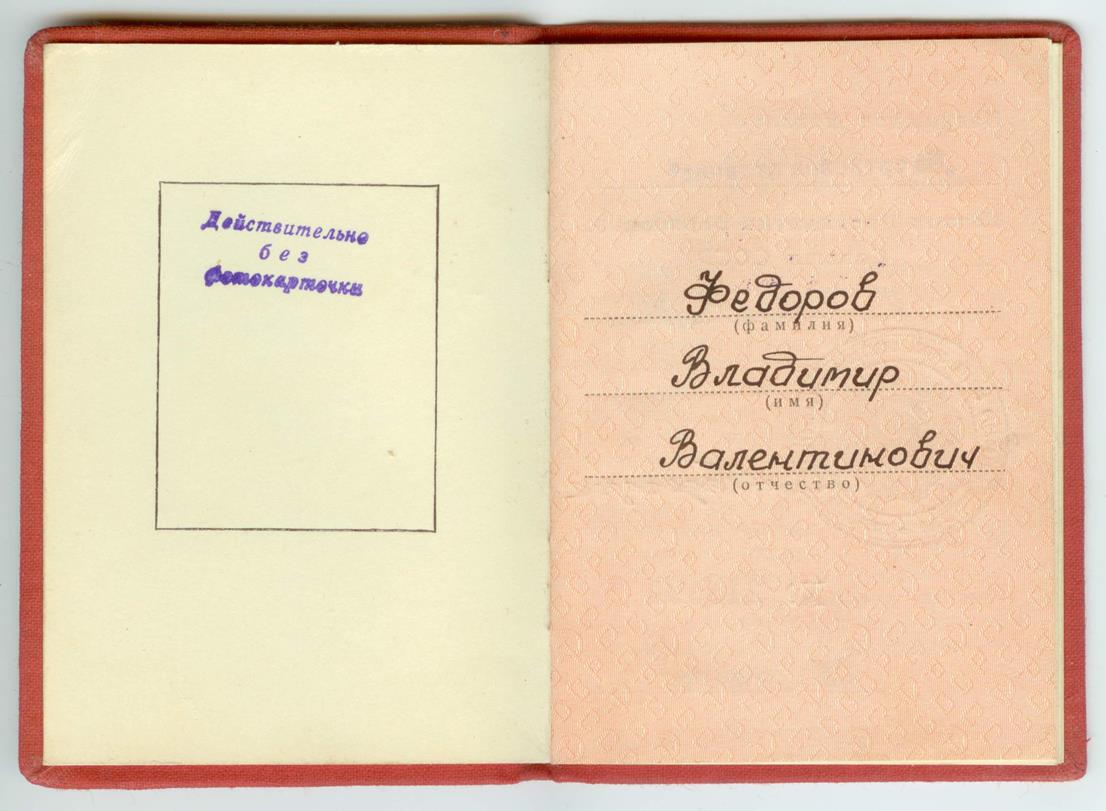 Действительно
без
фотокарточки
Федоров
(фамилия)
Владимир
(имя)
Валентинович
(отчество)